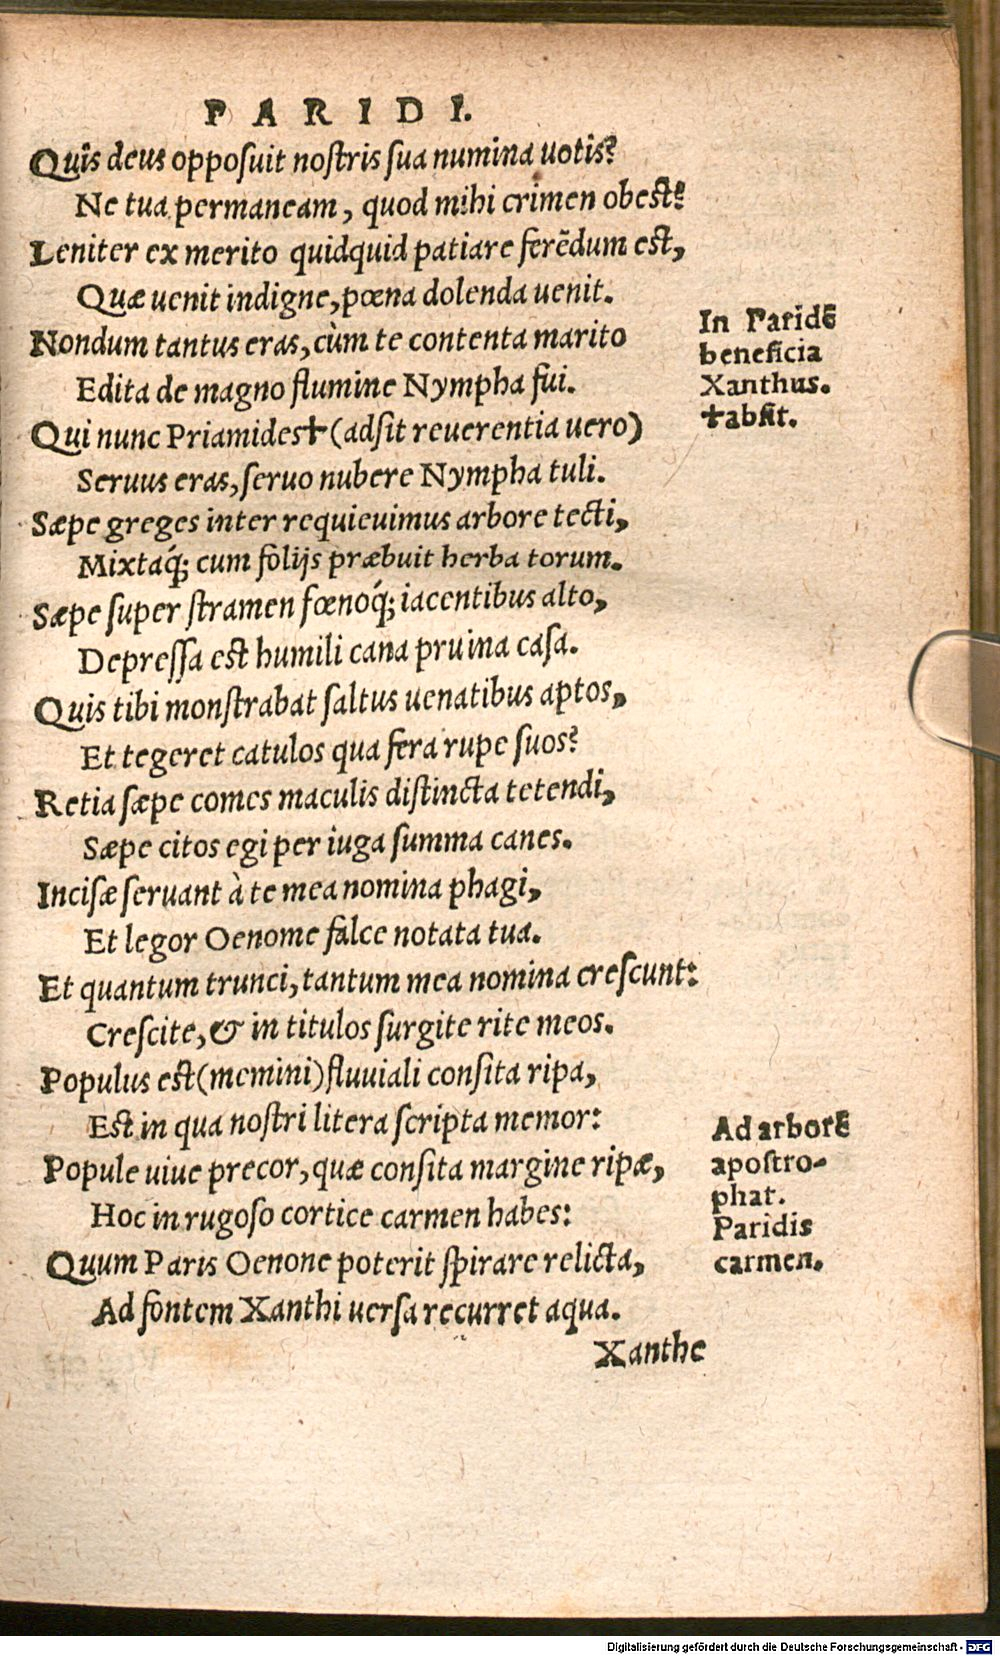 PARIDI.
Quis deus opposuit nostris sua numina uotis?
Ne tua permaneam, quod mihi crimen obest?
Leniter ex merito quidquid patiare ferēdum est,
Quæ uenit indigne, pœna dolenda uenit.
Nondum tantus eras, cùm te contenta marito
Edita de magno flumine Nympha fui.
Qui nunc Priamides✝(adsit reuerentia uero)
Seruus eras, seruo nubere Nympha tuli.
Sæpe greges inter requieuimus arbore tecti,
Mixtaq́; cum folijs præbuit herba torum.
Sæpe super stramen fœnoq́; iacentibus alto,
Depressa est humili cana pruina casa.
Quis tibi monstrabat saltus uenatibus aptos,
Et tegeret catulos qua fera rupe suos?
Retia sæpe comes maculis distincta tetendi,
Sæpe citos egi per iuga summa canes.
Incisæ seruant à te mea nomina phagi,
Et legor Oenome falce notata tua.
Et quantum trunci, tantum mea nomina crescunt:
Crescite, & in titulos surgite rite meos.
Populus est (memini) fluuiali consita ripa,
Est in qua nostri litera scripta memor:
Popule uiue precor, quæ consita margine ripæ,
Hoc in rugoso cortice carmen habes:
Quum Paris Oenone poterit spirare relicta,
Ad fontem Xanthi uersa recurret aqua.
Xanthe
In Paridē
beneficia
Xanthus.
✝absit.
Ad arborē
apostro-
phat.
Paridis
carmen.
Digitalisierung gefördert durch die Deutsche Forschungsgemeinschaft - DFG